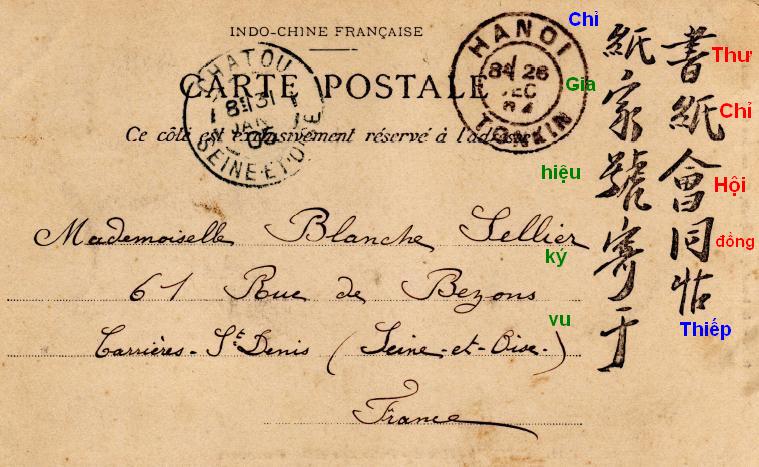 INDO-CHINE FRANÇAISE
CARTE POSTALE
Ce côté est exclusivement réservé à l'adresse
CHATOU
31
JAN
SEINE-ET-OISE
HANOI
26
DEC
04
TONKIN
Mademoiselle Blanche Sellier
61 Rue de Bezons
Carrières-St Denis (Seine-et-Oise.)
France
書紙會同帖
紙家號寄于
Thư
Chỉ
Hội
đồng
Thiếp
Chỉ
Gia
hiệu
ký
vu